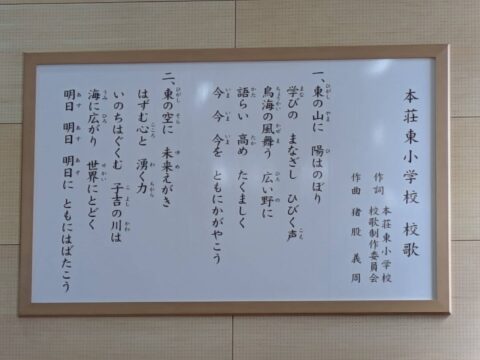 本荘東小学校 校歌
作詞 本荘東小学校
校歌制作委員会
作曲 猪股義周
一、東の山に 陽はのぼり
学びの まなざし ひびく声
鳥海の風舞う 広い野に
語らい 高め たくましく
今 今 今を ともにかがやこう
二、東の空に 未来えがき
はずむ心と 湧く力
いのちはぐくむ 子吉の川は
海に広がり 世界にとどく
明日 明日 明日に ともにはばたこう